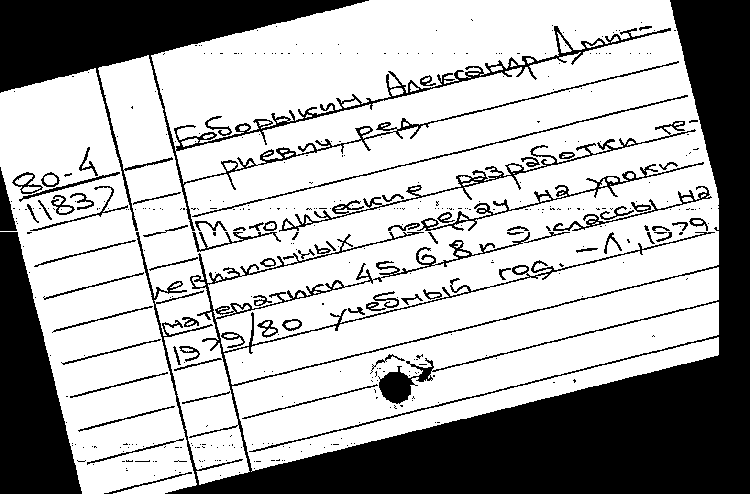 Боборыкин, Александр Дмит-
риевич, ред.
80-4
11837
Методические разработки те-
левизионных передач на уроки
математики 4,5, 6, 8 и 9 классы на
1979/80 учебный год. - Л., 1979.